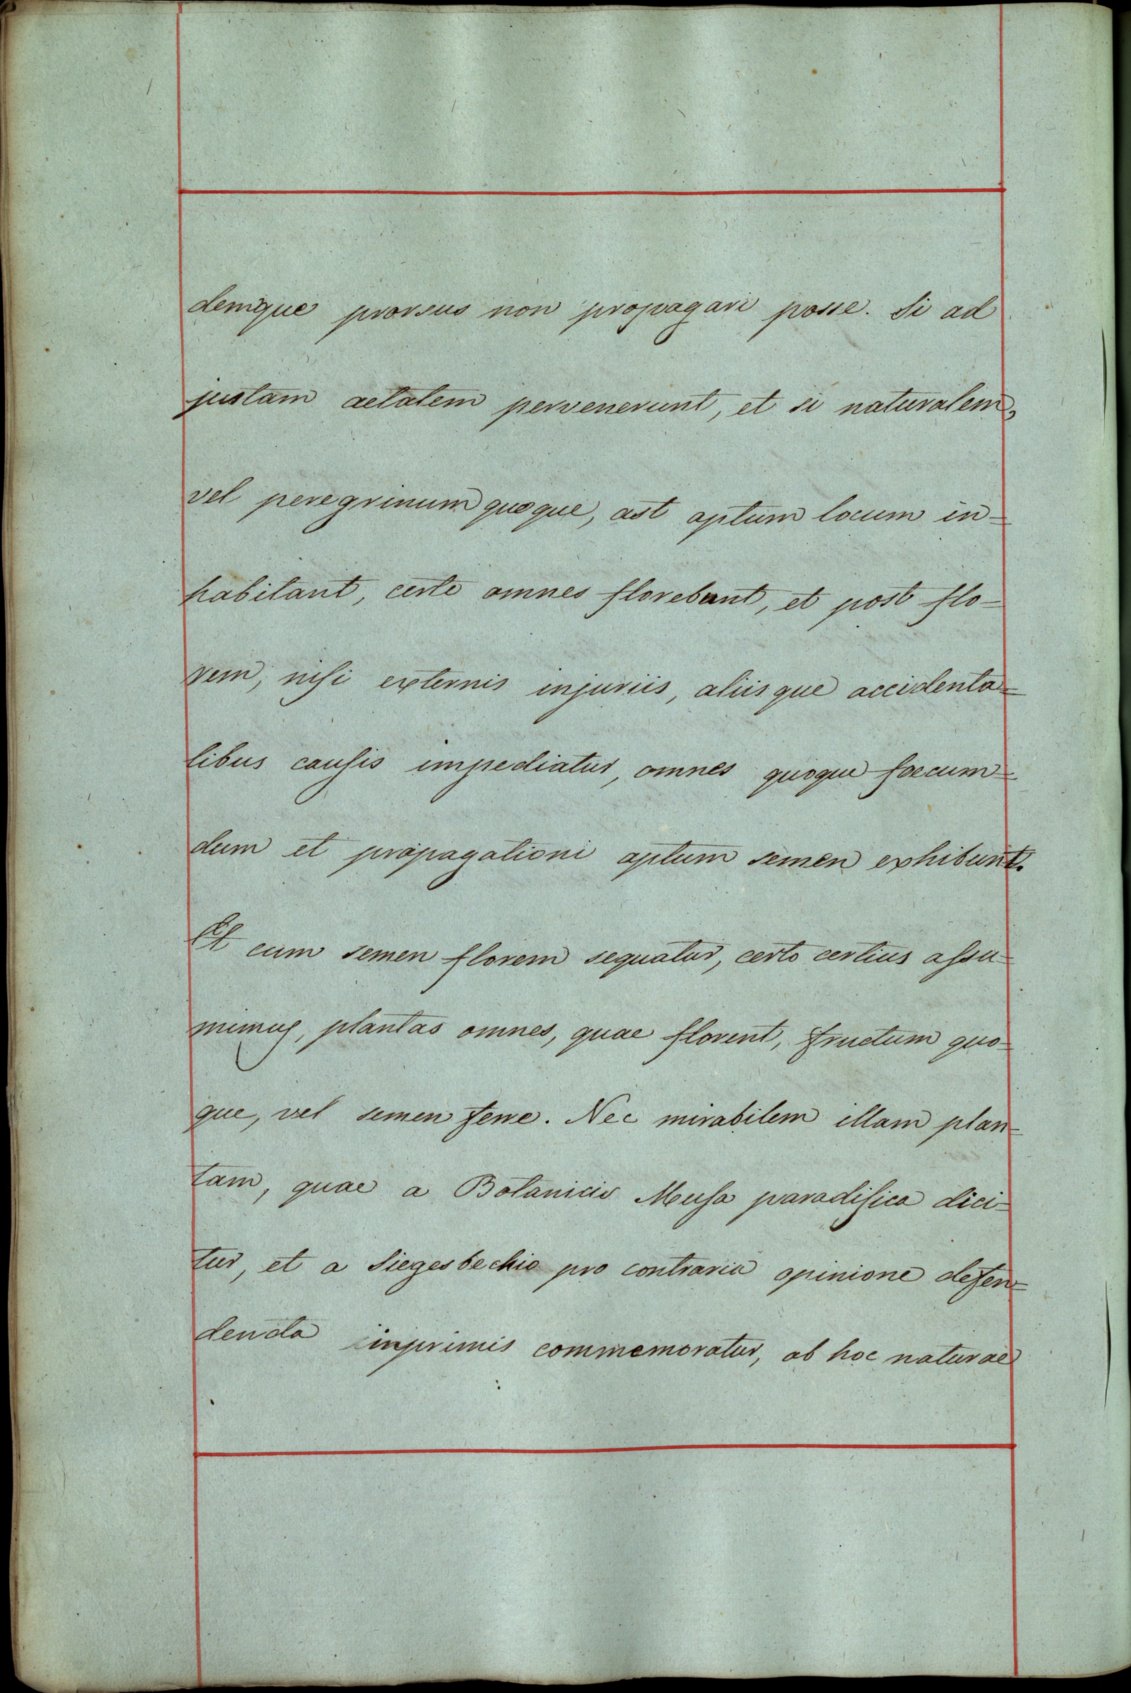 denique prorsus non propagari posse. Si ad
justam aetatem pervenerunt, et si naturalem,
vel peregrinum quoque, ast aptum locum in=
habitant, certe omnes florebunt, et post flo=
rem, nisi externis injuriis, aliisque accidenta=
libus causis impediatur, omnes quoque foecun=
dum et propagationi aptum semen exhibunt.
Et cum semen florem sequatur, certo certius assu=
mimus, plantas omnes, quae florent, fructum quo=
que, vel semen ferre. Nec mirabilem illam plan=
tam, quae a Botanicis Musa paradisica dici=
tur, et a Siegesbechio pro contraria opinione defen=
denda inprimis commemoratur, ab hoc naturae